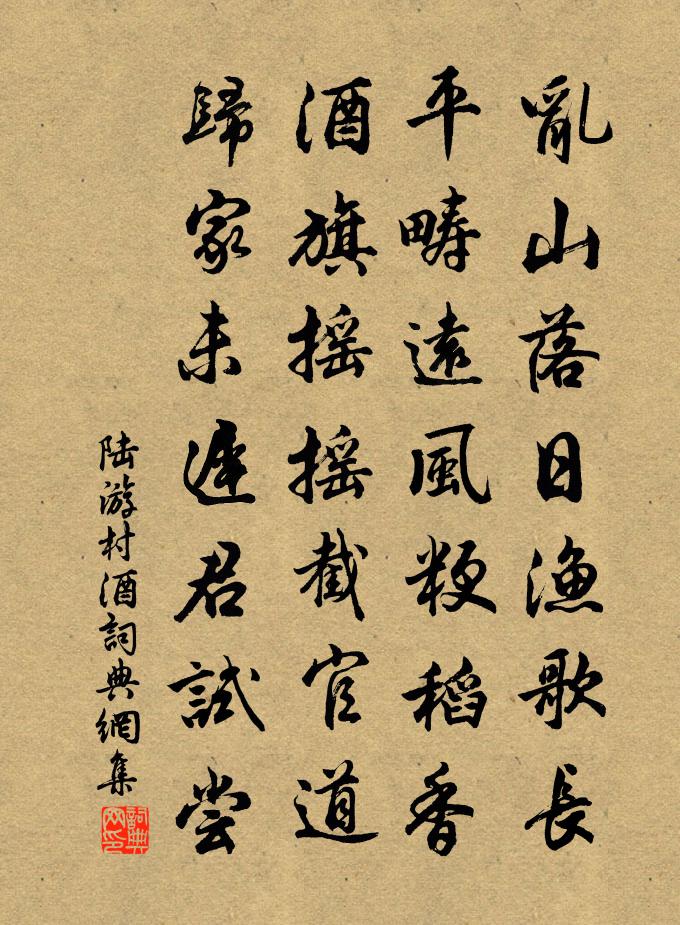 亂山落日漁歌長
平疇遠風粳稻香
酒旗摇摇截官道
歸家未遲君試嘗
陆游村酒詞典網集
詞典网印